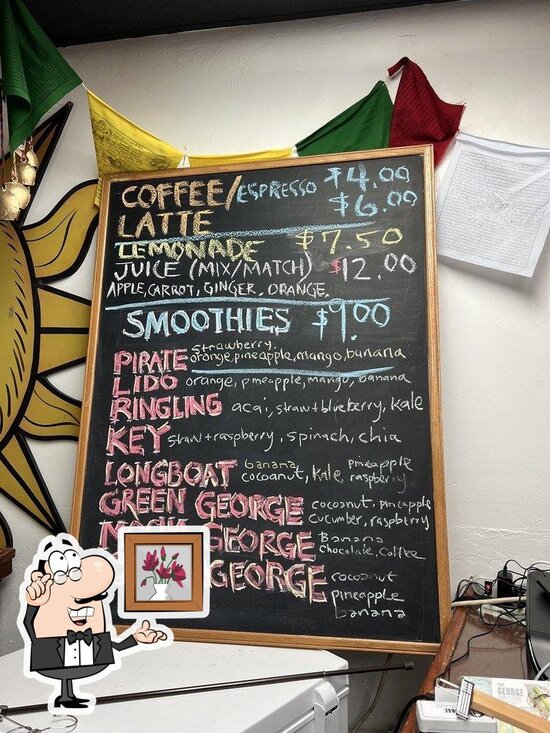 COFFEE/ ESPRESSO $4.00
LATTE $6.00
LEMONADE $7.50
JUICE (MIX/MATCH) $12.00
APPLE, CARROT, GINGER, ORANGE
SMOOTHIES $9.00
PIRATE strawberry, orange, pineapple, mango, banana
LIDO orange, pineapple, mango, banana
RINGLING acai, straw+blueberry, kale
KEY straw+raspberry, spinach, chia
LONGBOAT banana pineapple
cocoanut, kale, raspberry
GREEN GEORGE cocoanut, pineapple
cucumber, raspberry
GEORGE Banana
chocolate, coffee
GEORGE cocoanut
pineapple
banana
GEORGE